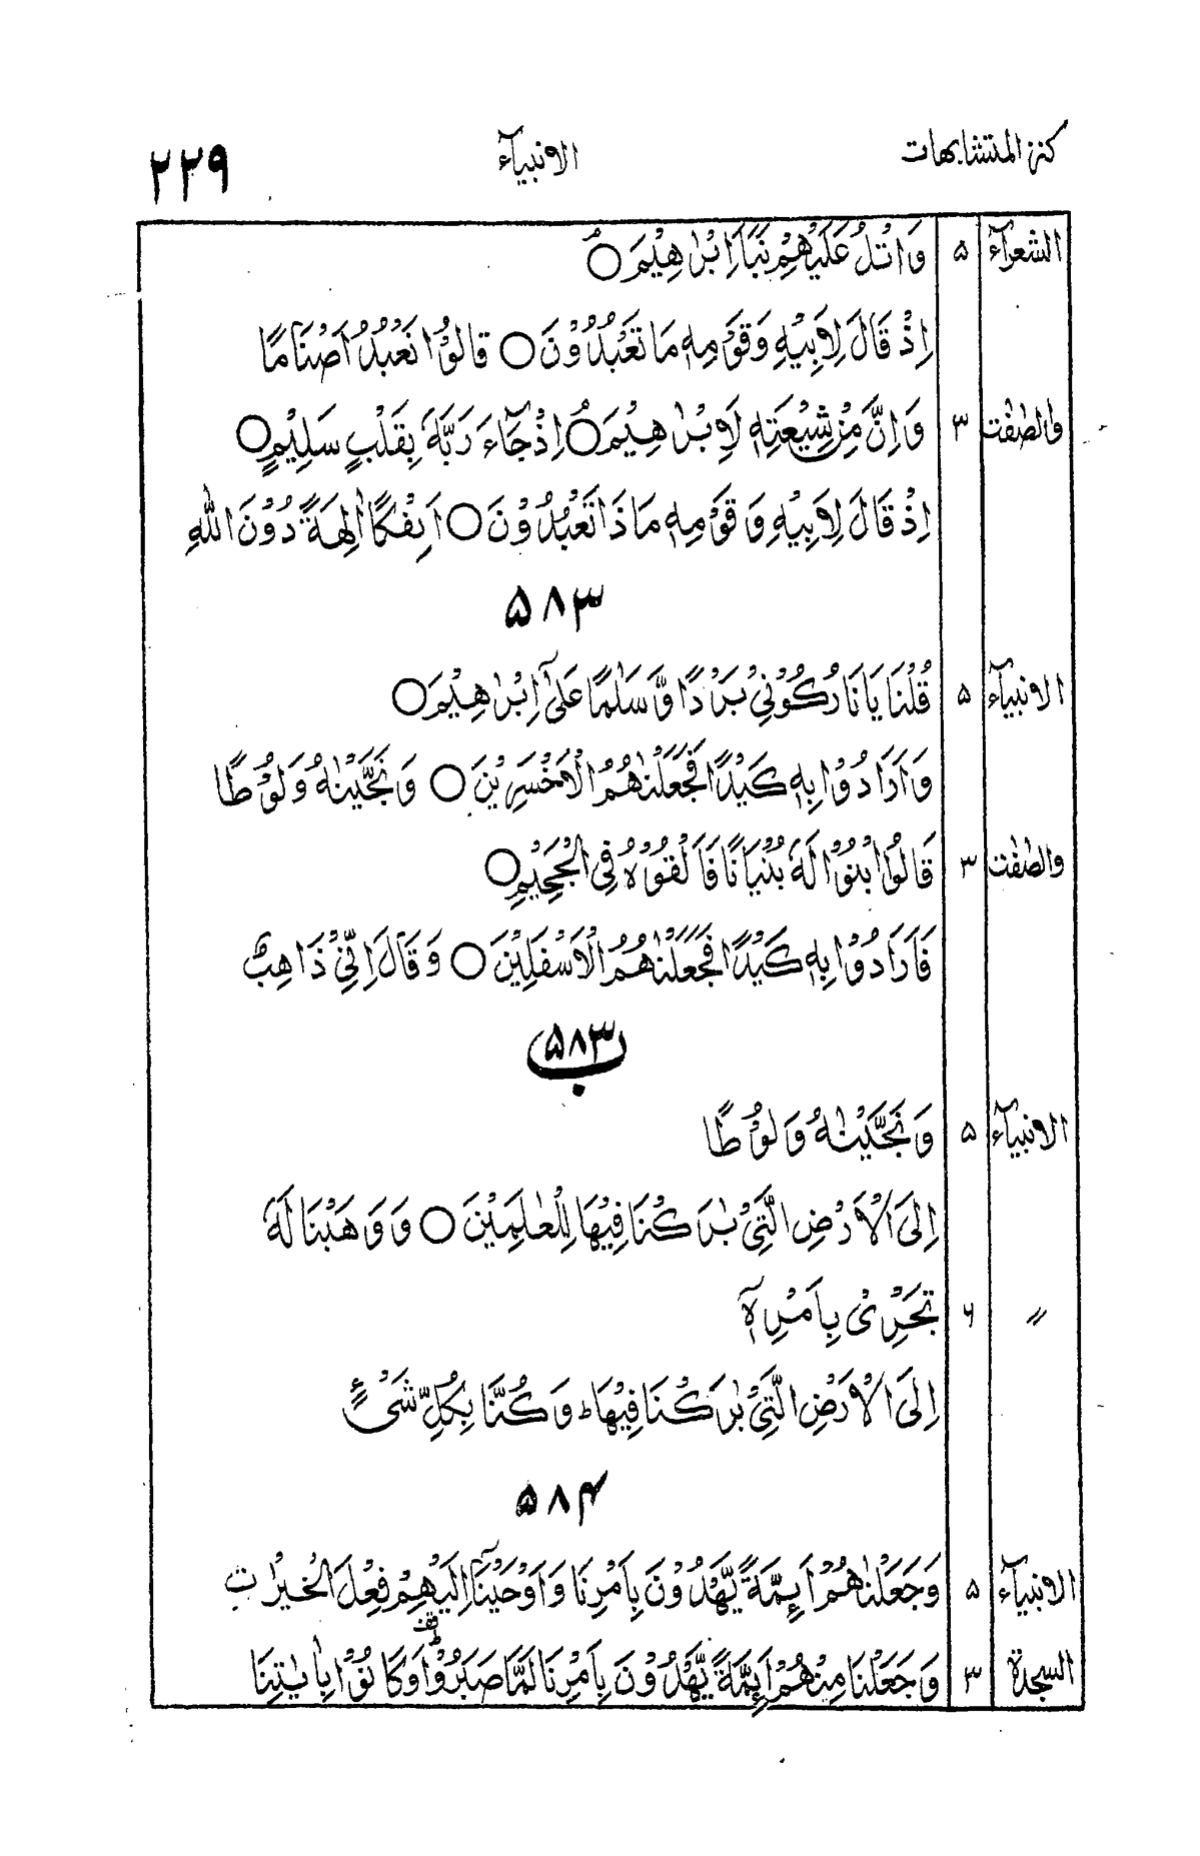 كنز المتشابهات الانبيآء ۲۲۹
الشعرآء ۵ وَاتْلُ عَلَيْهِمْ نَبَاَ اِبْرٰهِيْمَ ۘ○
اِذْ قَالَ لِاَبِيْهِ وَقَوْمِهٖ مَا تَعْبُدُوْنَ ○ قَالُوْا نَعْبُدُ اَصْنَامًا
والصّٰفّٰت ۳ وَاِنَّ مِنْ شِيْعَتِهٖ لَاِبْرٰهِيْمَ ۘ○ اِذْ جَآءَ رَبَّهٗ بِقَلْبٍ سَلِيْمٍ ○
اِذْ قَالَ لِاَبِيْهِ وَقَوْمِهٖ مَاذَا تَعْبُدُوْنَ ○ اَئِفْكًا اٰلِهَةً دُوْنَ اللّٰهِ
۵۸۳
الانبيآء ۵ قُلْنَا يَانَارُ كُوْنِيْ بَرْدًا وَّ سَلٰمًا عَلٰٓى اِبْرٰهِيْمَ ○
وَاَرَادُوْا بِهٖ كَيْدًا فَجَعَلْنٰهُمُ الْاَخْسَرِيْنَ ○ وَنَجَّيْنٰهُ وَلُوْطًا
والصّٰفّٰت ۳ قَالُوا ابْنُوْا لَهٗ بُنْيَانًا فَاَلْقُوْهُ فِي الْجَحِيْمِ ○
فَاَرَادُوْا بِهٖ كَيْدًا فَجَعَلْنٰهُمُ الْاَسْفَلِيْنَ ○ وَقَالَ اِنِّيْ ذَاهِبٌ
۵۸۳ ب
الانبيآء ۵ وَنَجَّيْنٰهُ وَلُوْطًا
اِلَى الْاَرْضِ الَّتِيْ بٰرَكْنَا فِيْهَا لِلْعٰلَمِيْنَ ○ وَوَهَبْنَا لَهٗ
〃 ۶ تَجْرِيْ بِاَمْرِهٖٓ
اِلَى الْاَرْضِ الَّتِيْ بٰرَكْنَا فِيْهَا ؕ وَكُنَّا بِكُلِّ شَيْءٍ
۵۸۴
الانبيآء ۵ وَجَعَلْنٰهُمْ اَئِمَّةً يَّهْدُوْنَ بِاَمْرِنَا وَاَوْحَيْنَآ اِلَيْهِمْ فِعْلَ الْخَيْرٰتِ
السجدة ۳ وَجَعَلْنَا مِنْهُمْ اَئِمَّةً يَّهْدُوْنَ بِاَمْرِنَا لَمَّا صَبَرُوْا ۗ وَكَانُوْا بِاٰيٰتِنَا